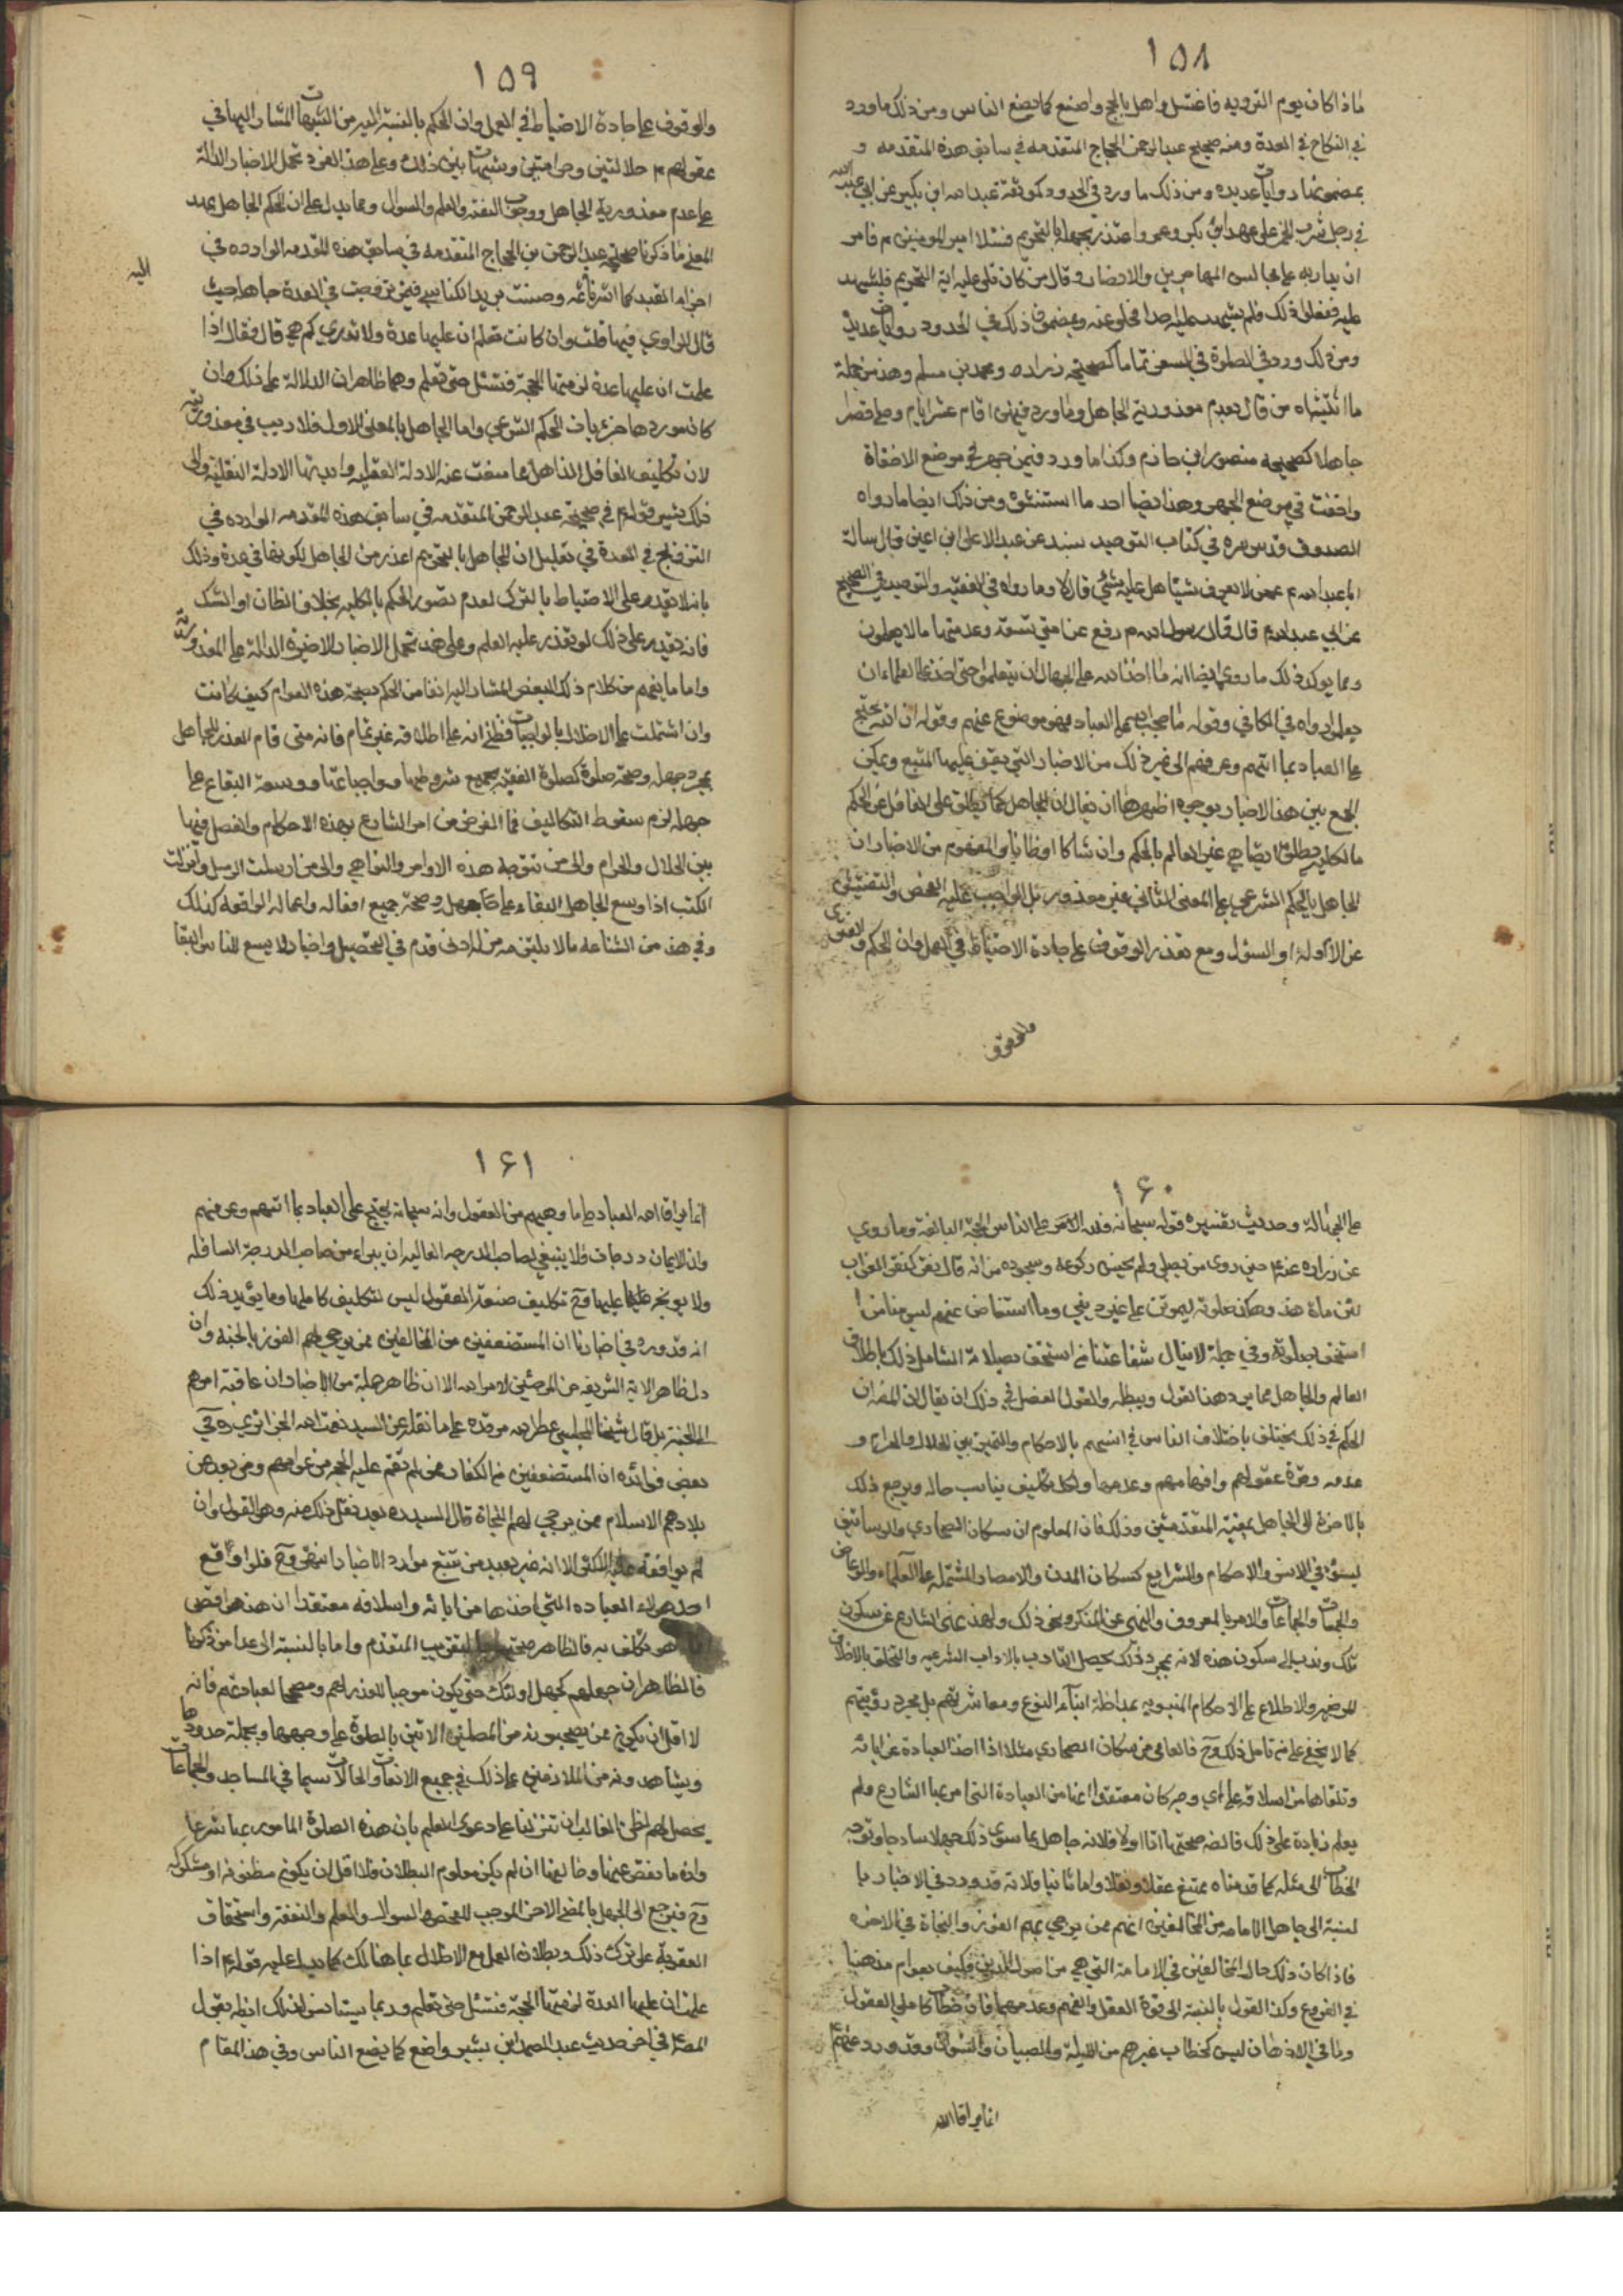 ١٥٨
فاذا كان يوم الترويه فاغتسل واهل بالحج واصنع كما يصنع الناس ومن ذلك ما ورد
في النكاح في العدة ومنه صحيح عبد الرحمن الحجاج المتقدمه في سابق هذه المقدمه و
بمضمونها روايات عديده ومن ذلك ما ورد في الحدود كموثقة عبد الله ابن بكير عن ابي عبد الله
في رجل شرب الخمر على عهد ابي بكر وعمر واعتذر بجهله بالتحريم فسئلا امير المومنين ع فامر
ان يدار به على مجالس المهاجرين والانصار وقال من كان تلى عليه اية التحريم فليشهد
عليه ففعلوا ذلك فلم يشهد عليه احد فخلى عنه وبمضمون ذلك في الحدود روايات عديدة
ومن ذلك ورد في الصلوة في السفر تماما كصحيحه زراره ومحمد بن مسلم وهذ من جملة
ما استثناه من قال بعدم معذورية الجاهل وما ورد فيمن اقام عشر ايام وصلى قصرا
جاهلا كصحيحه منصور ابن حازم وكذا ما ورد فيمن جهر في موضع الاخفاة
واخفت في موضع الجهر وهذا ايضا احد ما استثنوه ومن ذلك ايضا ما رواه
الصدوق قدس سره في كتاب التوحيد بسند عن عبد الاعلى ابن اعين قال سالة
ابا عبد الله ع عمن لا يعرف شيئا هل عليه شئ قال لا وما رواه في الفقيه والتوحيد في الصحيح
عن ابي عبد الله ع قال قال رسول الله ص رفع عن امتي تسعة وعد منها ما لا يعلمون
ومما يوكد ذلك ما روي ايضا انه ما اخذ الله على الجهال ان يتعلموا حتى اخذ على العلماء ان
يعلموا رواه في الكافي وقوله ما حجب الله علمه العباد فهو موضوع عنهم وقوله ان الله يحتج
على العباد بما اتيهم وعرفهم الى غير ذلك من الاخبار التي يقف عليها المتتبع ويمكن
الجمع بين هذه الاخبار بوجوه اظهرها ان يقال ان الجاهل كما يطلق على الغافل عن الحكم
بالكليه يطلق ايضا على غير العالم بالحكم وان شاكا او ظانا والمفهوم من الاخبار ان
الجاهل بالحكم الشرعي على المعنى الثاني غير معذور بل الواجب عليه الفحص والتفتيش
عن الادلة او السؤل ومع تعذر الوقوف على جادة الاحتياط في العمل وان الحكم والفتوى
والوقوف
١٥٩
والوقوف على جادة الاحتياط في العمل وان الحكم بالنسبة اليه من الشبهات المشار اليها في
عقولهم ع حلال بين وحرام بين وشبهات بين ذلك وعلى هذا الفرد تحمل الاخبار الدالة
على عدم معذورية الجاهل ووجوب التفقه والعلم والسؤال ومما يدل على ان الحكم الجاهل بهذ
المعنى ما ذكرنا صحيحة عبد الرحمن بن الحجاج المتقدمه في سابق هذه المقدمه الوارده في
اليه
اجزاء الصيد كما اشرنا ثمه وحسنت بريد الكناسي فيمن تزوجت في العدة جاهله حيث
قال الراوي فيها قلت وان كانت تعلم ان عليها عدة ولا تدري كم هي قال فقال اذا
علمت ان عليها عدة لزمتها الحجة فتسئل حتى تعلم وهما ظاهران الدلالة على ذلك وان
كان موردهما جزئيات الحكم الشرعي واما الجاهل بالمعنى الاول فلا ريب في معذوريته
لان تكليف الغافل الذاهل مما منعت عنه الادلة العقليه وايدتها الادلة النقلية والى
ذلك يشير قوله ع في صحيحة عبد الرحمن المتقدمه في سابق هذه المقدمه الوارده في
التزويج في العدة في تعليل ان الجاهل بالتحريم اعذر من الجاهل بكونها في عدة وذلك
بانه لا يقدر على الاحتياط بالترك لعدم تصور الحكم بالكليه بخلاف الظان او الشاك
فانه يقدر على ذلك لو تعذر عليه العلم وعلى هذ تحمل الاخبار الاخيره الدالة على المعذورية
واما ما يفهم من كلام ذلك البعض المشار اليه انفا من الحكم بصحة هذه العوام كيف كانت
وان اشتملت على الاخلال بالواجبات فظني انه على اطلاقه غير تمام فانه متى قام العذر للجاهل
بمجرد جهله وصحة صلوة كصلوة الفقيه بجميع شروطها وواجباتها ووسعه البقاء على
جهله لزم سقوط التكاليف فما الغرض من امر الشارع بهذه الاحكام والفصل فيها
بين الحلال والحرام والى من تتوجه هذه الاوامر والنواهي والى من ارسلت الرسل وانزلت
الكتب اذا وسع الجاهل البقاء على جهله وصحة جميع افعاله واعماله الواقعه كذلك
وفي هذ من الشناعه ما لا يلتزمه من له ادنى قدم في التحصيل واخبار لا يسع للناس البقا
١۶٠
على الجهالة وحديث تفسيره قوله سبحانه فلله الامر على الناس الحجة البالغة وما روي
عن زراره عنه ع حين روى من يصلي ولم يحسن ركوعه وسجوده من انه قال نقر كنقر الغراب
لئن مات هذ وهكذا صلوته ليموتن على غير ديني وما استفاض عنهم ليس منا من
استخف بصلوته وفي جملة لا ينال شفاعتنا من استخف بصلاته الشامل ذلك باطلاق
العالم والجاهل مما يرد هذ القول ويبطله والقول الفصل في ذلك ان يقال ان الظ ان
الحكم في ذلك يختلف باختلاف الناس في انسهم بالاحكام والتميز بين الحلال والحرام و
عدمه وقوة عقولهم وافهامهم وعدمها ولكل تكليف يناسب حاله ويرجع ذلك
بالاخرة الى الجاهل بمعنيه المتقدمين وذلك فان المعلوم ان سكان الصحاري والرساتيق
ليسوا في الانس والاحكام والشرايع كسكان المدن والامصار المشتمله على العلماء والوعاظ
والجمعات والجماعات والامر بالمعروف والنهي عن المنكر ونحو ذلك ولهذ نهى الشارع عن سكون
تلك وندب الى سكون هذه لانه بمجرد ذلك يحصل التادب بالاداب الشرعيه والتخلق بالاخلاق
المرضيه والاطلاع على الاحكام النبويه بمداخلة ابناء النوع ومعاشرتهم بل بمجرد رؤيتهم
كما لا يخفى على من تامل ذلك وح فالعامي من سكان الصحاري مثلا اذا اخذ العبادة عن ابائه
وتلقاها من اسلافه على اي وجه كان معتقدا انها من العبادة التي امر بها الشارع ولم
يعلم زيادة على ذلك فالظ صحتها اما اولا فلانه جاهل بما سوى ذلك جهلا ساذجا وتوجه
الخطاب الى مثله كما قدمناه ممتنع عقلا ونقلا واما ثانيا فلانه قد ورد في الاخبار با
لنسبة الى جاهل الامامه من المخالفين انهم ممن يرجى لهم الفوز والنجاة في الاخره
فاذا كان ذلك حال المخالفين في الامامة التي هي من اصول الدين فكيف بعوام مذهبنا
في الفروع وكذ القول بالنسبة الى قوة العقل والفهم وعدمهما فان خطاب كاملي العقول
وثاقبي الاذهان ليس كخطاب غيرهم من البله والصبيان والنسوان وقد ورد عنهم ع
انما يداق الله
١۶١
انما يداق الله العباد على ما وهبهم من العقول وانه سبحانه يحتج على العباد بما اتيهم وعرفهم
وان الايمان درجات فلا ينبغي لصاحب الدرجه العاليه ان يبراء من صاحب الدرجة السافله
ولا يوبخه عليها وح تكليف ضعفة العقول ليس كتكليف كاملها ومما يؤيد ذلك
انه قد ورد في اخبارنا ان المستضعفين من المخالفين ممن يرجى لهم الفوز بالجنة وان
دل ظاهر الاية الشريفه من المرجئين لامر الله الا ان ظاهر جملة من الاخبار ان عاقبة امرهم
الى الجنة بل قال شيخنا المجلسي عطر الله مرقده على ما نقله عن السيد نعمت الله الجزائري ره في
بعض فوائده ان المستضعفين من الكفار ممن لم تقم عليه الحجه من عوامهم ومن بعد عن
بلادهم الاسلام ممن يرجى لهم النجاة قال السيد ره بعد نقل ذلك عنه وهو القول وان
لم يوافقه عليه الاكثر الا انه غير بعيد ممن تتبع موارد الاخبار انتهى وح فلو اوقع
احد هولاء العباده التي اخذها من ابائه واسلافه معتقدا ان هذ هو اقصى
هو مكلف به فالظاهر صحتها بالتقريب المتقدم واما بالنسبة الى عدا من ذكرنا
فالظاهر ان جهلهم كجهل اولئك حتى يكون موجبا للعذر لهم ومصححا لعباداتهم فانه
لا اقل ان يكون ممن يصحبونه من المصلين الاتين بالصلوة على وجهها وبجملة حدودها
ويشاهدونه من الملازمين على ذلك في جميع الاوقات والحالات سيما في المساجد والجماعات
يحصل لهم الظن الغالب ان تنزلنا على دعوى العلم بان هذه الصلوة المامور بها شرعا
وان ما نقص عنها وخالفها ان لم يكن معلوم البطلان فلا اقل ان يكون مظنونه او مشكوكه
وح فيرجع الى الجهل بالمعنى الاخر الموجب للفحص والسوال والتعلم والتفقه واستحقاق
العقوبة على ترك ذلك وبطلان العمل مع الاخلال بما هنالك كما يدل عليه قوله ع اذا
علمت ان عليها العدة لزمتها الحجة فتسئل حتى تعلم وربما يستانس لذلك ايضا بقول
الصادق ع في اخر حديث عبد الصمد ابن بشير واصنع كما يصنع الناس وفي هذ المقام